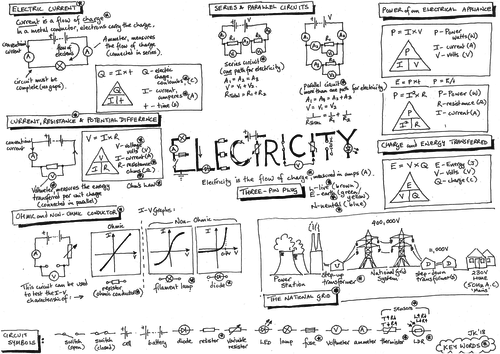 ELECTRIC CURRENT
Current is a flow of charge
in a metal conductor, electrons carry the charge.
conventional current
flow of electrons
Ammeter, measures
the flow of charge
(connected in series).
circuit must be
complete (no gaps).
Q = I × t
Q
I t
Q - electric
charge,
coulombs (C)
I - current,
amperes (A)
t - time (s)
SERIES & PARALLEL CIRCUITS
Series circuit
(one path for electricity)
A₁ = A₂ = A₃
V = V₁ + V₂
Parallel circuit
(more than one path for electricity)
A₁ = A₂ + A₃
V = V₁ = V₂
POWER of an ELECTRICAL APPLIANCE
P = I × V
P
I V
P - Power
watts (W)
I - current (A)
V - volts (V)
E = P × t
P = E/t
P = I² × R
P
I² R
P - Power (W)
R - resistance
(Ω)
I - current (A)
CURRENT, RESISTANCE & POTENTIAL DIFFERENCE
conventional
current
V = I × R
V
I R
V - voltage
volts (V)
I - current (A)
R - resistance
ohms (Ω)
Ohm's law
Voltmeter, measures the energy
transferred per unit charge
(connected in parallel)
ELECTRICITY
Electricity is the flow of charge, measured in amps (A).
THREE-PIN PLUG
L - live (brown)
E - earth (green/yellow)
N - neutral (blue)
CHARGE and ENERGY TRANSFERRED
E = V × Q
E
V Q
E - Energy (J)
V - volts (V)
Q - charge (C)
OHMIC and NON-OHMIC CONDUCTOR
This circuit can be used
to test the I-V
characteristic of :→
I-V Graphs:
Ohmic
Non-Ohmic
resistor
(ohmic conductor)
filament lamp
diode
400,000V
11,000V
Power
Station
step-up
transformer
National grid
system
step-down
transformer(s)
230V
HOUSE
(50Hz A.C)
'Mains'
THE NATIONAL GRID
CIRCUIT
SYMBOLS:
switch
(open)
switch
(closed)
cell
battery
diode
resistor
variable
resistor
LED
lamp
fuse
voltmeter
ammeter
thermistor
LDR
SENSORS
JK'18
KEY WORDS